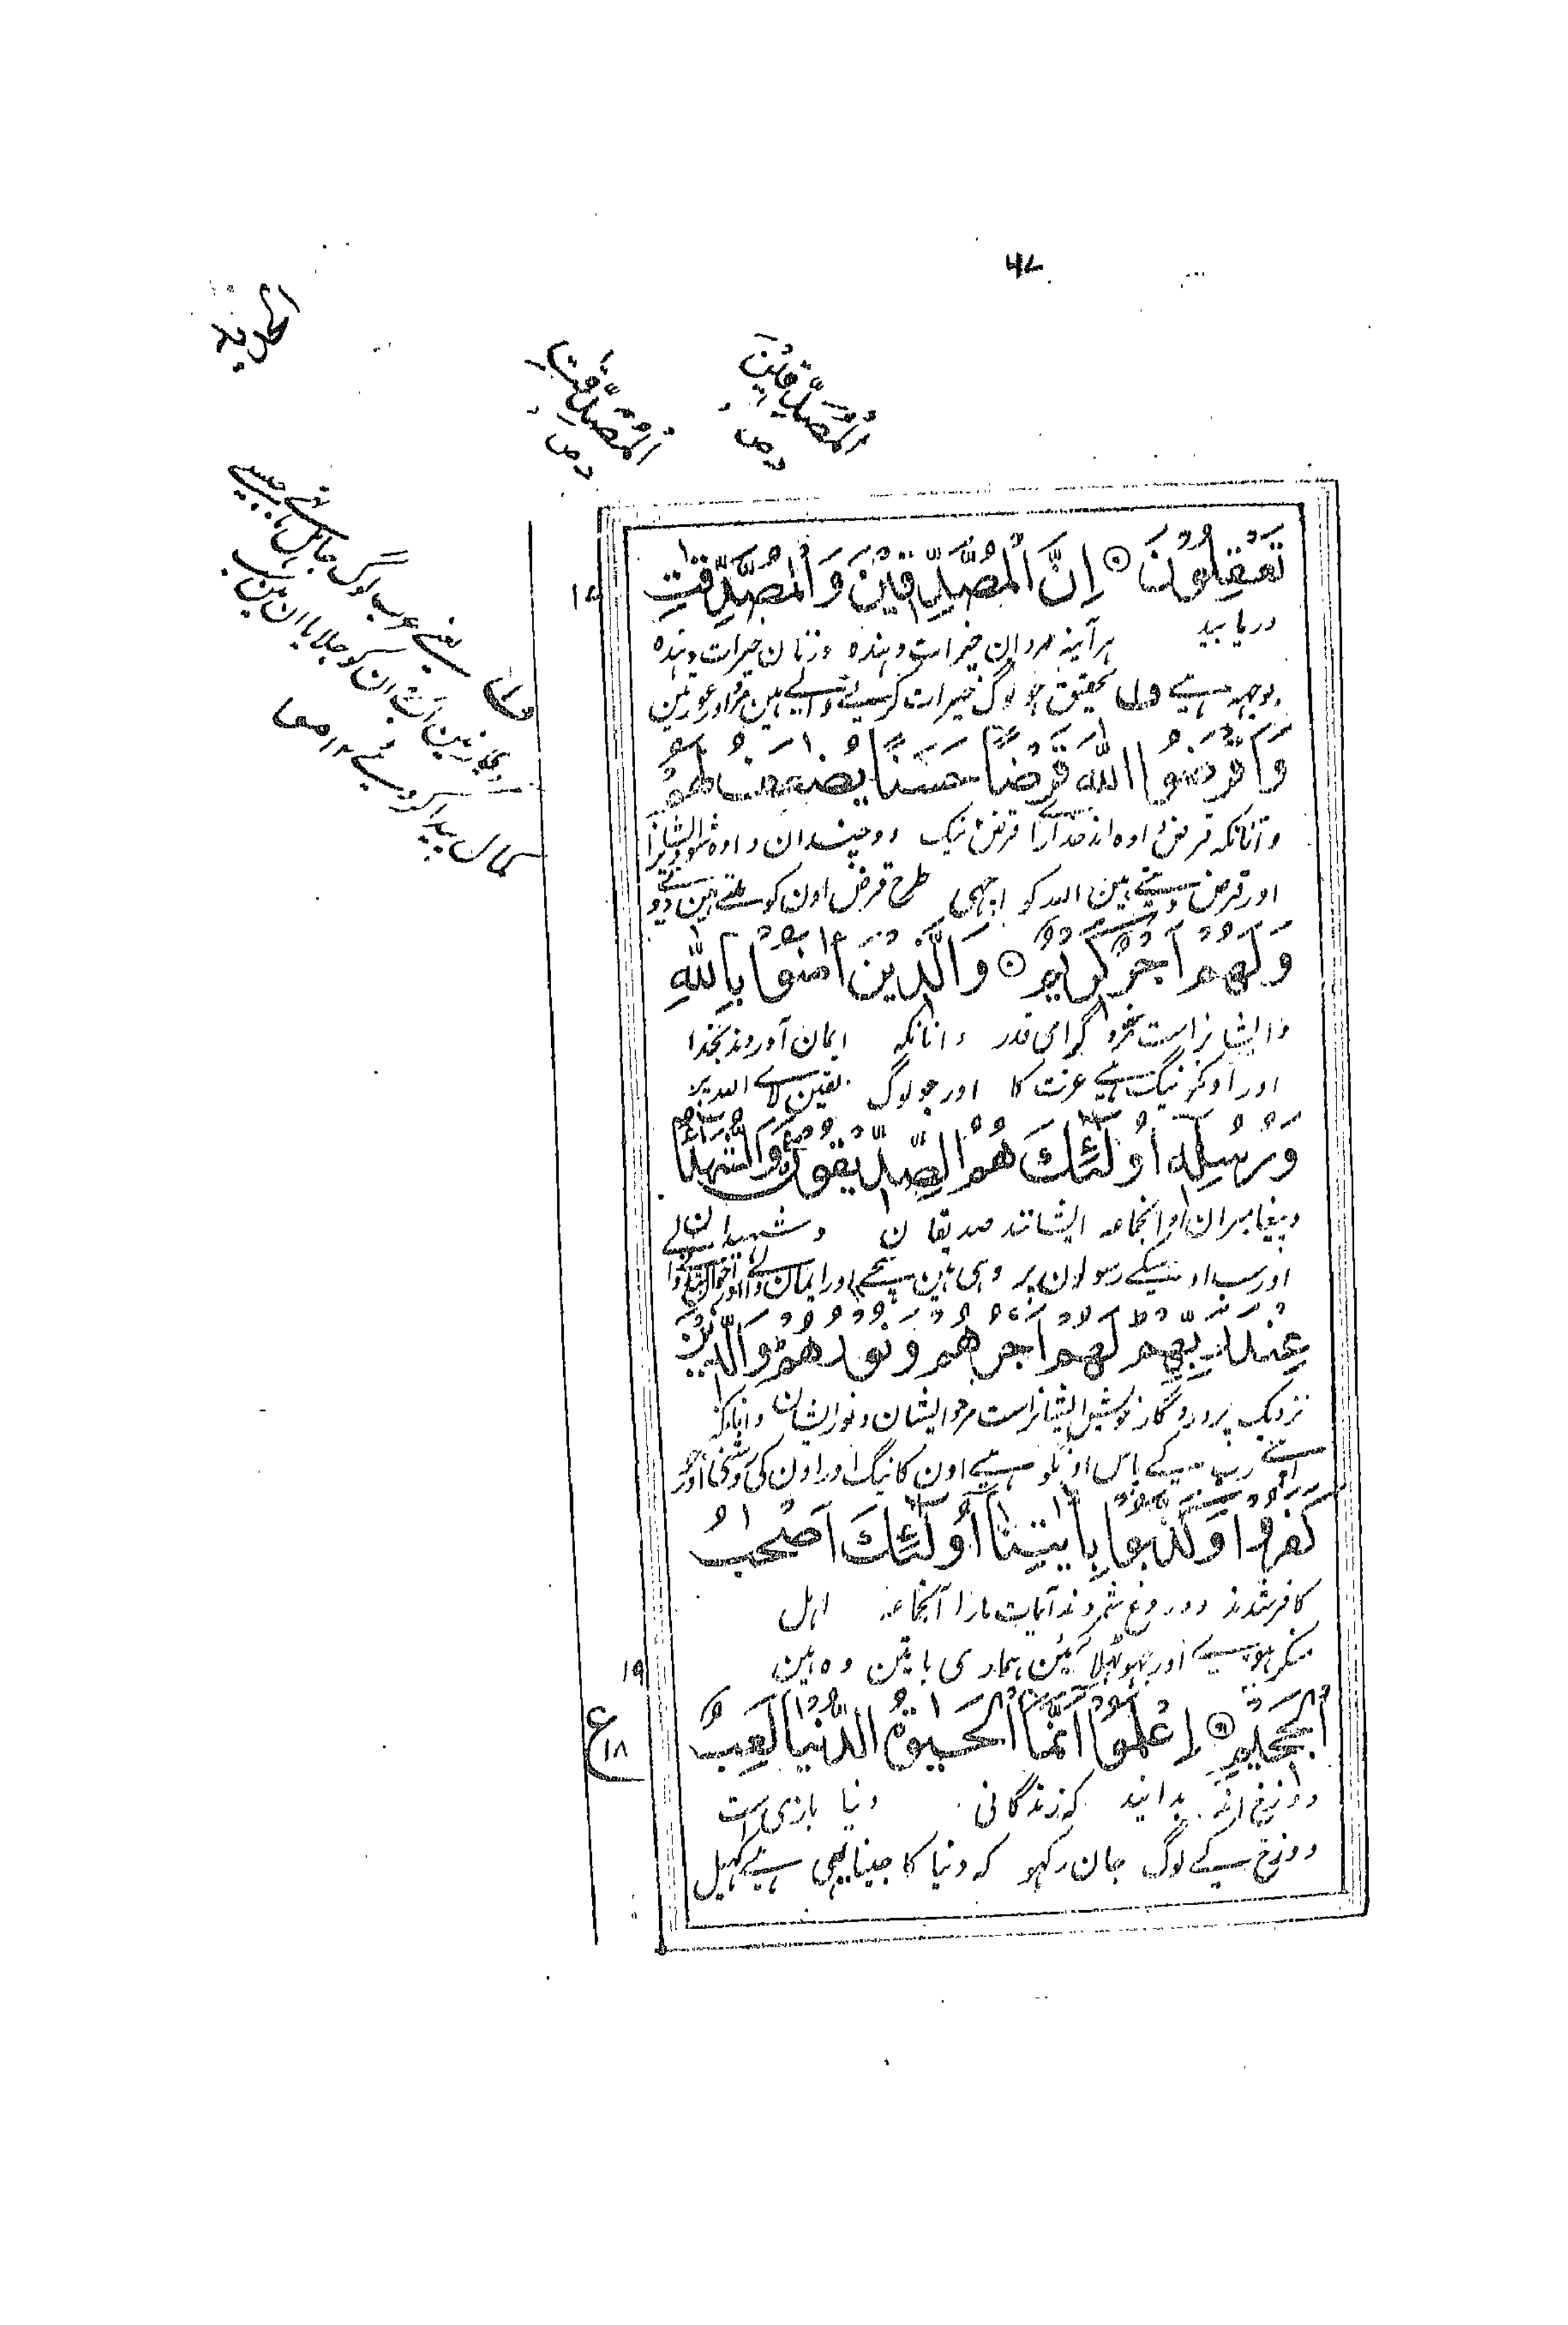 ۴۷
الحدید
المُصَّدِّقِینَ
المُصَّدِّقٰتِ
تَعْقِلُوْنَ ۝ اِنَّ الْمُصَّدِّقِیْنَ وَالْمُصَّدِّقٰتِ
دریابید ہر آینہ مردان خیرات دہندہ و زنان خیرات دہندہ
بوجہہ ہے تحقیق جو لوگ خیرات کرنے والے ہین مرد اور عورتین
وَاَقْرَضُوا اللّٰهَ قَرْضًا حَسَنًا یُّضٰعَفُ لَهُمْ
و آنانکہ قرض دادہ اند خدا را قرض نیک دو چندان دادہ شود ایشانرا
اور قرض دیتے ہین اللہ کو اچہی طرح قرض اون کو ملتے ہین
وَلَهُمْ اَجْرٌ كَرِیْمٌ ۝ وَالَّذِیْنَ اٰمَنُوْا بِاللّٰهِ
و ایشانراست مزد گرامی قدر و آنانکہ ایمان آوردند بخدا
اور اونکو نیگ ہے عزت کا اور جو لوگ یقین لائے اللہ پر
وَرُسُلِهٖ اُولٰٓئِكَ هُمُ الصِّدِّیْقُوْنَ وَالشُّهَدَآءُ
و پیغامبران او آنجماعہ ایشانند صدیقان و شہیدان
اور سب اوسکے رسولون پر وہی ہین سچے ایمان والے اور
عِنْدَ رَبِّهِمْ لَهُمْ اَجْرُهُمْ وَنُوْرُهُمْ وَالَّذِیْنَ
نزدیک پروردگار خویش ایشانراست مزد ایشان و نور ایشان و آنانکہ
اپنے رب کے پاس اونکو ہے اون کا نیگ اور اون کی روشنی اور جو
كَفَرُوْا وَكَذَّبُوْا بِاٰیٰتِنَآ اُولٰٓئِكَ اَصْحٰبُ
کافر شدند و دروغ شمردند آیات ما را آنجماعہ اہل
منکر ہوے اور جہوٹہلائین ہماری باتین وہ ہین
الْجَحِیْمِ ۝ اِعْلَمُوْٓا اَنَّمَا الْحَیٰوةُ الدُّنْیَا لَعِبٌ
دوزخ اند بدانید کہ زندگانی دنیا بازی است
دوزخ کے لوگ جان رکہو کہ دنیا کا جینا یہی ہے کہیل
یعنے عرب لوگ جاہل تہے جیسے
مردہ زمین اب ان کو جلایا ان مین سب
کمال پیدا کر دیے ۱۲
۱۹
ع
۱۸